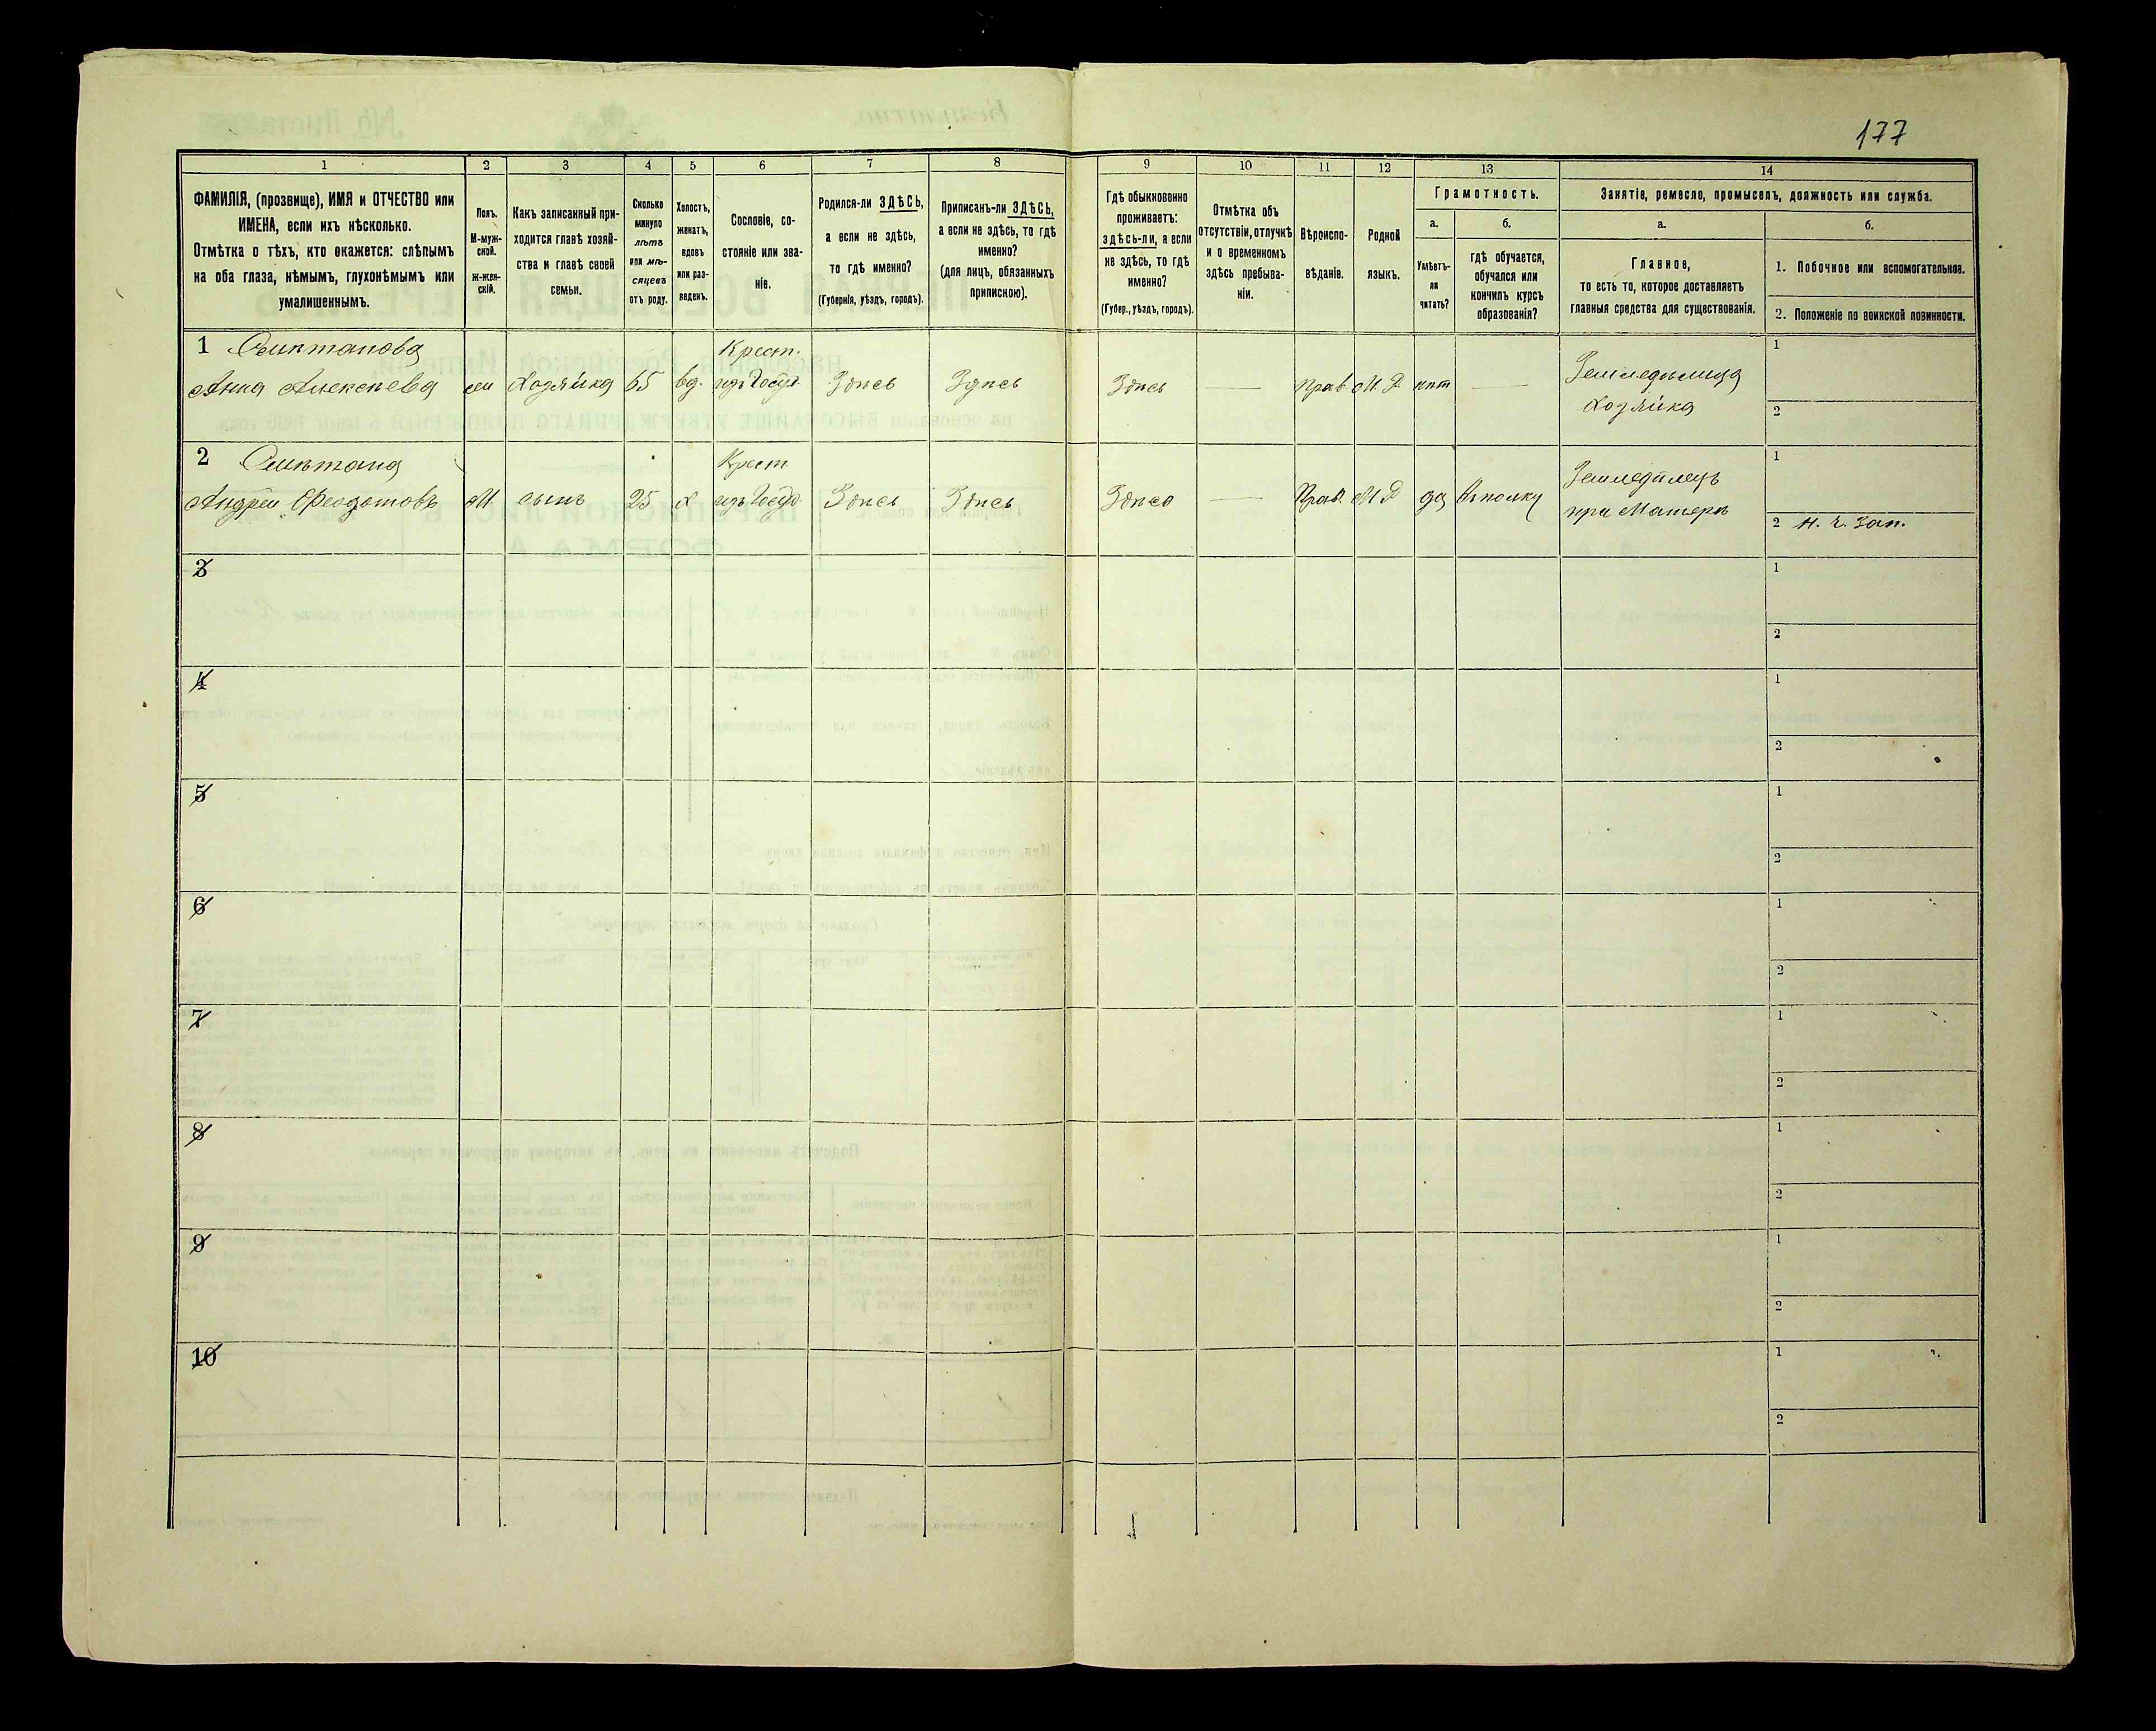 177
1
2
3
4
5
6
7
8
9
10
11
12
13
14
ФАМИЛІЯ, (прозвище), ИМЯ и ОТЧЕСТВО или
ИМЕНА, если ихъ нѣсколько.
Отмѣтка о тѣхъ, кто окажется: слѣпымъ
на оба глаза, нѣмымъ, глухонѣмымъ или
умалишеннымъ.
Полъ.
М-муж-
ской.
Ж-жен-
скій.
Какъ записанный при-
ходится главѣ хозяй-
ства и главѣ своей
семьи.
Сколько
минуло
лѣтъ
или мѣ-
сяцевъ
отъ роду.
Холостъ,
женатъ,
вдовъ
или раз-
веденъ.
Сословіе, со-
стояніе или зва-
ніе.
Родился-ли ЗДѢСЬ,
а если не здѣсь,
то гдѣ именно?
(Губернія, уѣздъ, городъ).
Приписанъ-ли ЗДѢСЬ,
а если не здѣсь, то гдѣ
именно?
(для лицъ, обязанныхъ
припискою).
Гдѣ обыкновенно
проживаетъ:
здѣсь-ли, а если
не здѣсь, то гдѣ
именно?
(Губер., уѣздъ, городъ).
Отмѣтка объ
отсутствіи, отлучкѣ
и о временномъ
здѣсь пребыва-
ніи.
Вѣроиспо-
вѣданіе.
Родной
языкъ.
Грамотность.
а.
Умѣетъ-
ли
читать?
б.
гдѣ обучается,
обучался или
кончилъ курсъ
образованія?
Занятіе, ремесло, промыселъ, должность или служба.
а.
Главное,
то есть то, которое доставляетъ
главныя средства для существованія.
б.
1. Побочное или вспомогательное.
2. Положеніе по воинской повинности.
1
Анна Алексѣева
Хозяйка
65
вд.
Крест.
изъ Госуд.
Здѣсь
Здѣсь
Здѣсь
Прав.
М. Р.
нѣт
Земледѣлица
Хозяйка
1
2
2
Андрей Феодотовъ
М
сынъ
25
х
Крест
изъ Госуд.
Здѣсь
Здѣсь
Здѣсь
Прав.
М Р
да
Въ полку
Земледѣлецъ
при Матери
1
2 Н. Ч. Зап.
3
1
2
4
1
2
5
1
2
6
1
2
7
1
2
8
1
2
9
1
2
10
1
2